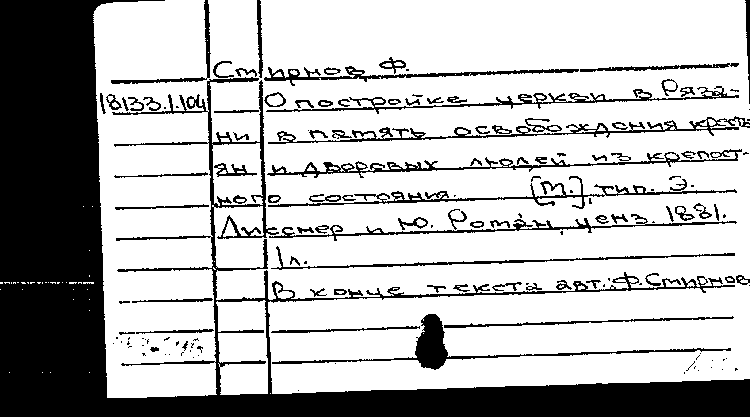 Смирнов Ф.
18133.1.104 О постройке церкви в Ряза-
ни в память освобождения кресть
ян и дворовых людей из крепост-
ного состояния. [М.], тип. Э.
Лисснер и Ю. Роман, ценз. 1881.
1 л.
В конце текста авт.: Ф. Смирнов